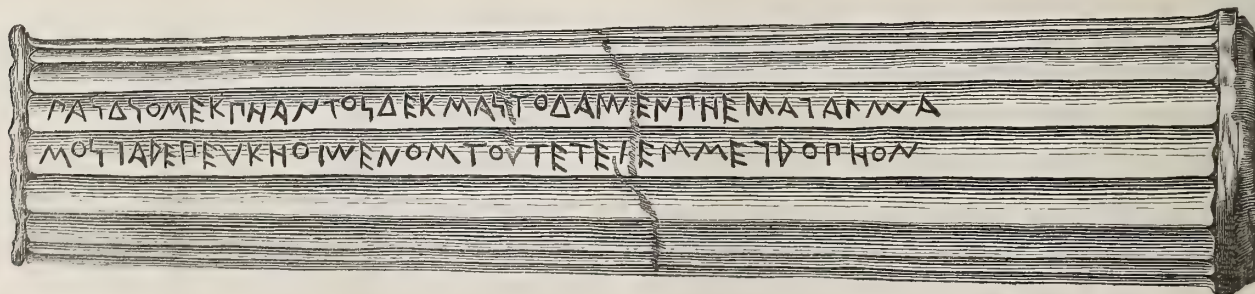 ΠΑΙΔΙΟΣΕΚΠΗΑΝΤΟΙΔΕΚΣΑΙΤΟΔΑΜΕΝΠΗΕΣΑΓΑΛΜΑ
ΣΟΙΓΑΡΕΠΕΥΚΗΟΜΕΝΟΣΤΟΥΤΕΤΕΛΕΣΣΕΓΡΟΠΗΟΝ